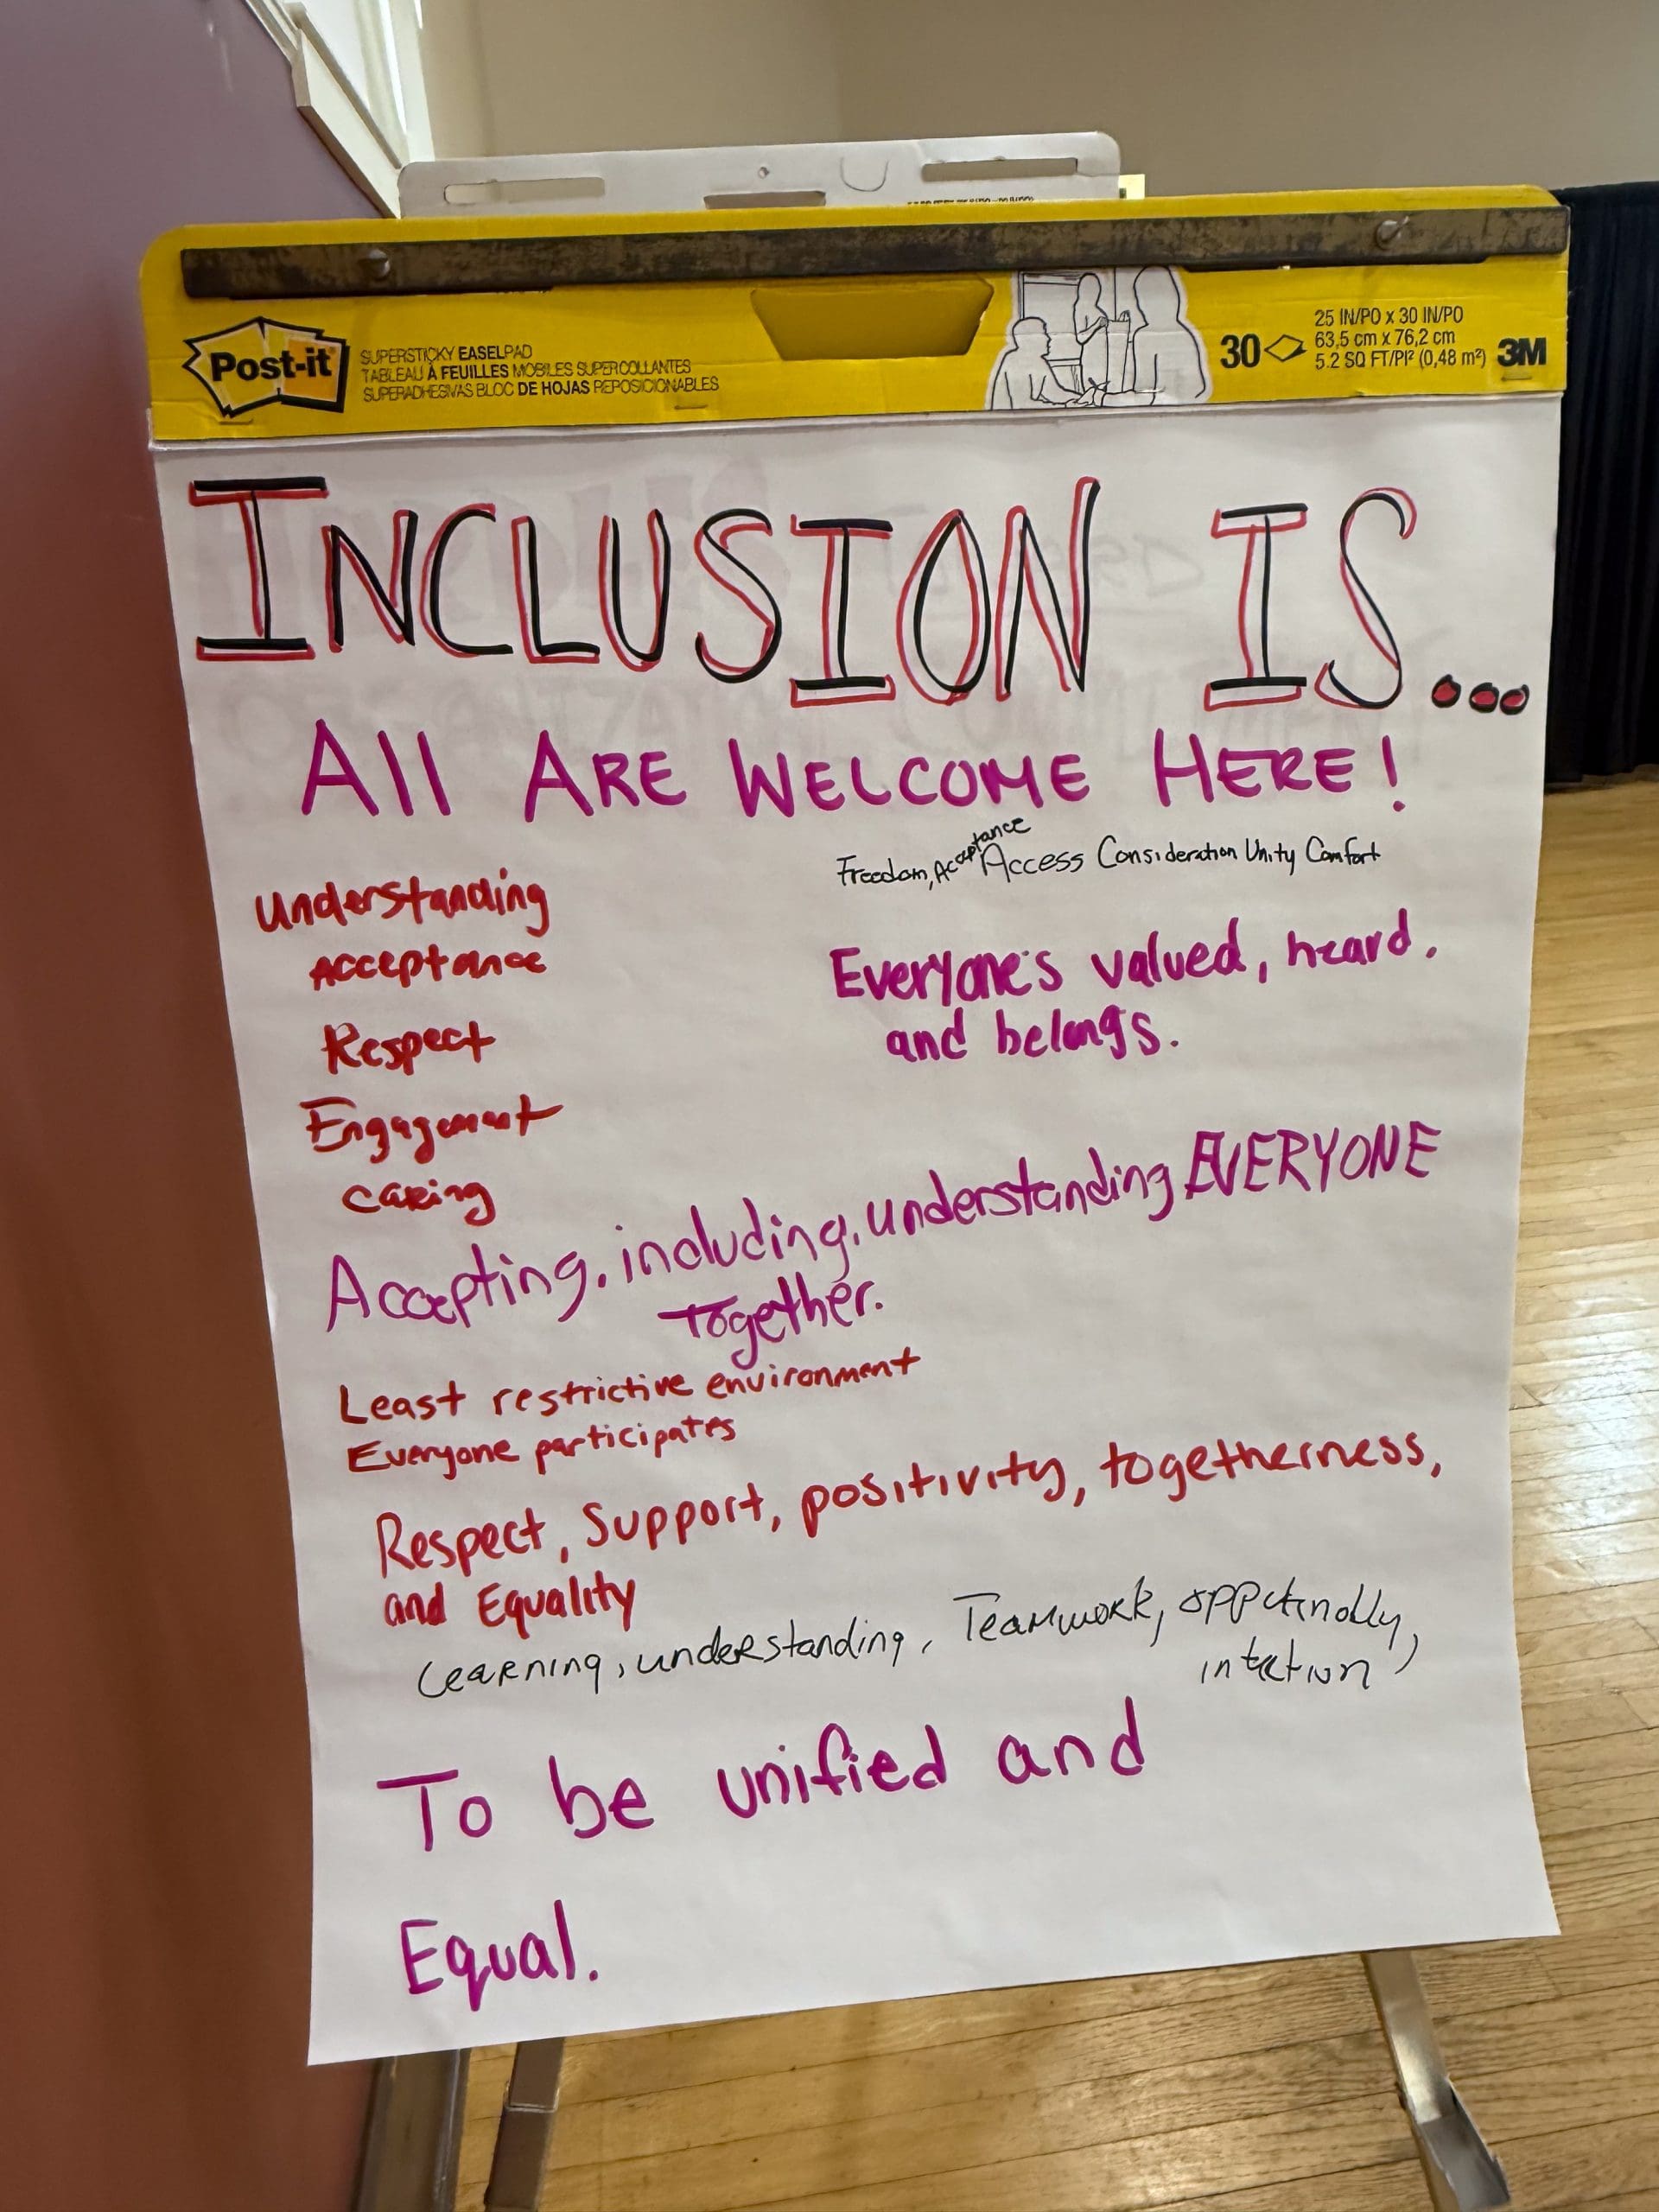 Post-it
SUPERSTICKY EASEL PAD
TABLEAU À FEUILLES MOBILES SUPER COLLANTES
SUPERADHESIVAS BLOC DE HOJAS REPOSICIONABLES
30
25 IN/PO x 30 IN/PO
63,5 cm x 76,2 cm
5.2 SQ FT/PI² (0,48 m²)
3M
INCLUSION IS...
All ARE WELCOME HERE!
Freedom, Acceptance Access Consideration Unity Comfort
Understanding
Acceptance
Respect
Engagement
Caring
Everyone's valued, heard.
and belongs.
Accepting, including, understanding EVERYONE
Together.
Least restrictive environment
Everyone participates
Respect, Support, positivity, togetherness,
and Equality
Learning, understanding, Teamwork,
To be unified and
Equal.